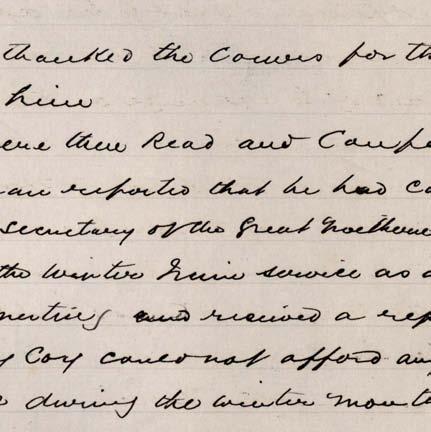 thanked the Comrs for th
him
ere then Read and Conf
an reported that he had co
secretary of the Great Northern
the Winter Train service as a
meeting and received a rep
y Coy could not afford any
during the winter mont